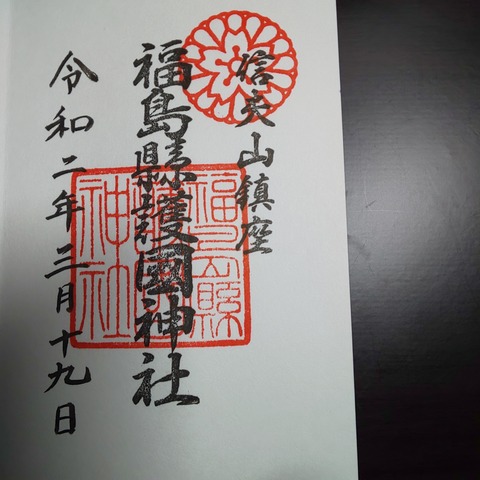 信夫山鎮座
福島縣護國神社
令和二年三月十九日
福島縣
神社